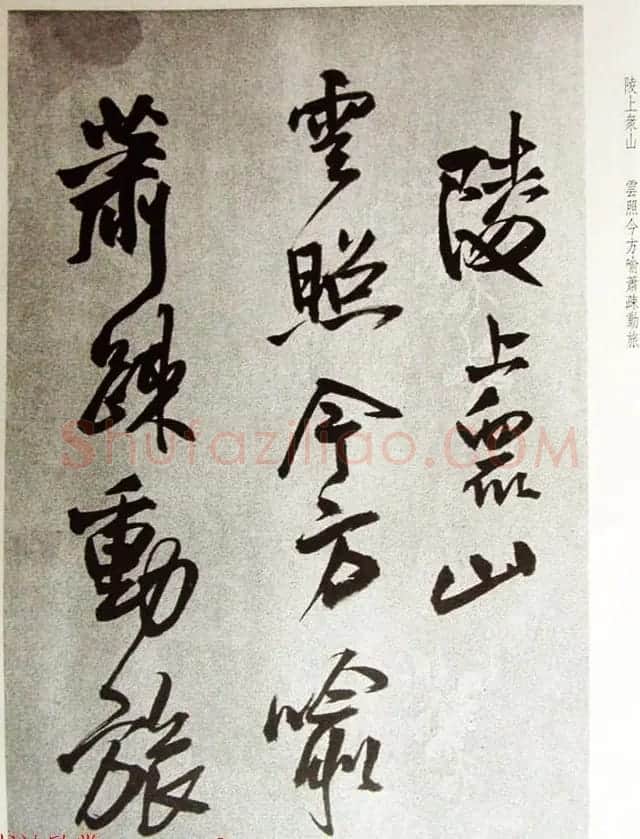 陵上衆山　雲照今方喻蕭疎動旅
陵上衆山
雲照今方喻
蕭踈動旅
Shufaziliao.COM